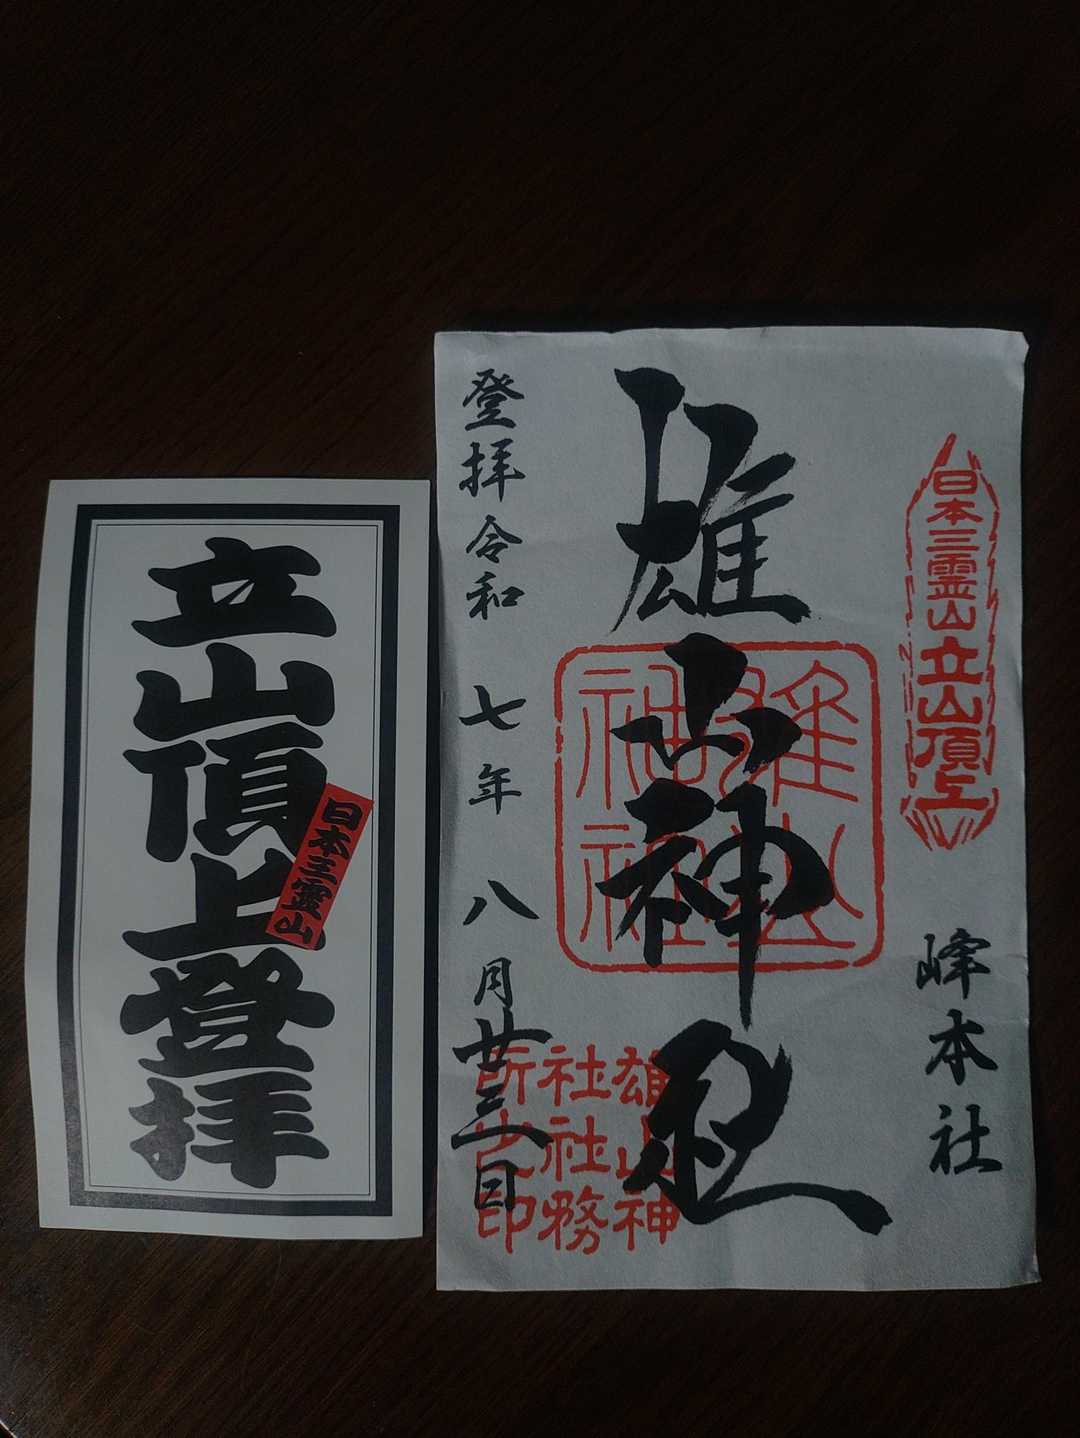 立山頂上登拝
日本三靈山
日本三霊山立山頂上
峰本社
雄山神社
雄山
神社
登拝令和七年八月廿三日
雄山神
社社務
所之印